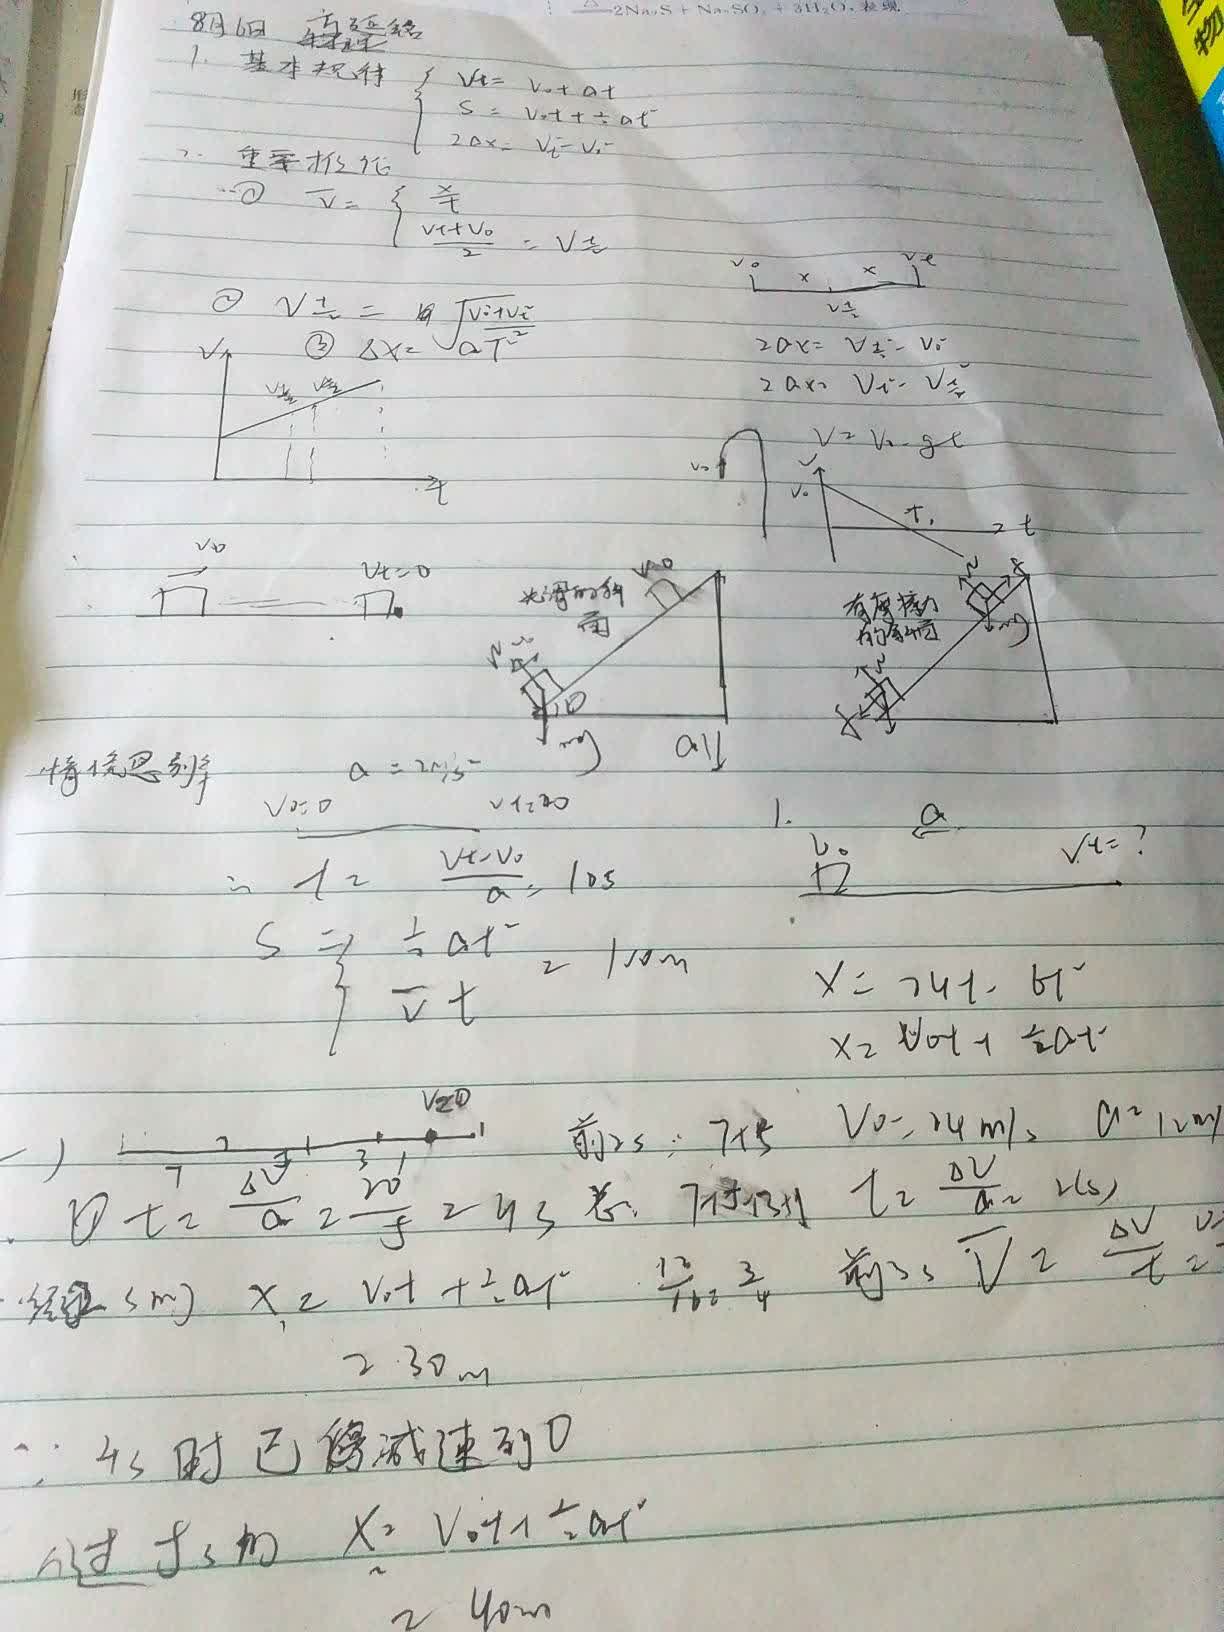 2Na₂S + Na₂SO₃ + 3H₂O.
物
8月6日
1. 基本规律 { Vt = V₀ + at
S = V₀t + ½at²
2ax = Vt² - V₀²
2. 重要推论
① V̄ = { x/t
(Vt+V₀)/2 = V t/2
② V = √((V₀²+Vt²)/2)
③ Δx = aT²
V₀ x x Vt
2ax = V² - V₀²
2ax = Vt² - V²
V
t
V = V₀ - gt
V₀ V V₀ t₁ t
V₀ Vt=0
光滑的斜面 V=0
N V₀ θ mg a//
有摩擦力的斜面
N f mg
N f
a = 2m/s²
V₀=0 Vt=20
∴ t = (Vt-V₀)/a = 10s
S = { ½at²
V̄t = 100m
1. a
V₀ Vt=?
x = 24t - 6t²
x = V₀t + ½at²
V=0
7 5 3 1
前2s: 7+5 V₀=24m/s a=12m/
① t = ΔV/a = 20/5 = 4s 总: 7+5+3+1 t = ΔV/a = 2(s)
x₁ = V₀t + ½at² 12/16 = 3/4 前3s V̄ = ΔV/t =
= 30m
∵ 4s时已 减速到0
过5s的 x₂ = V₀t + ½at²
= 40m